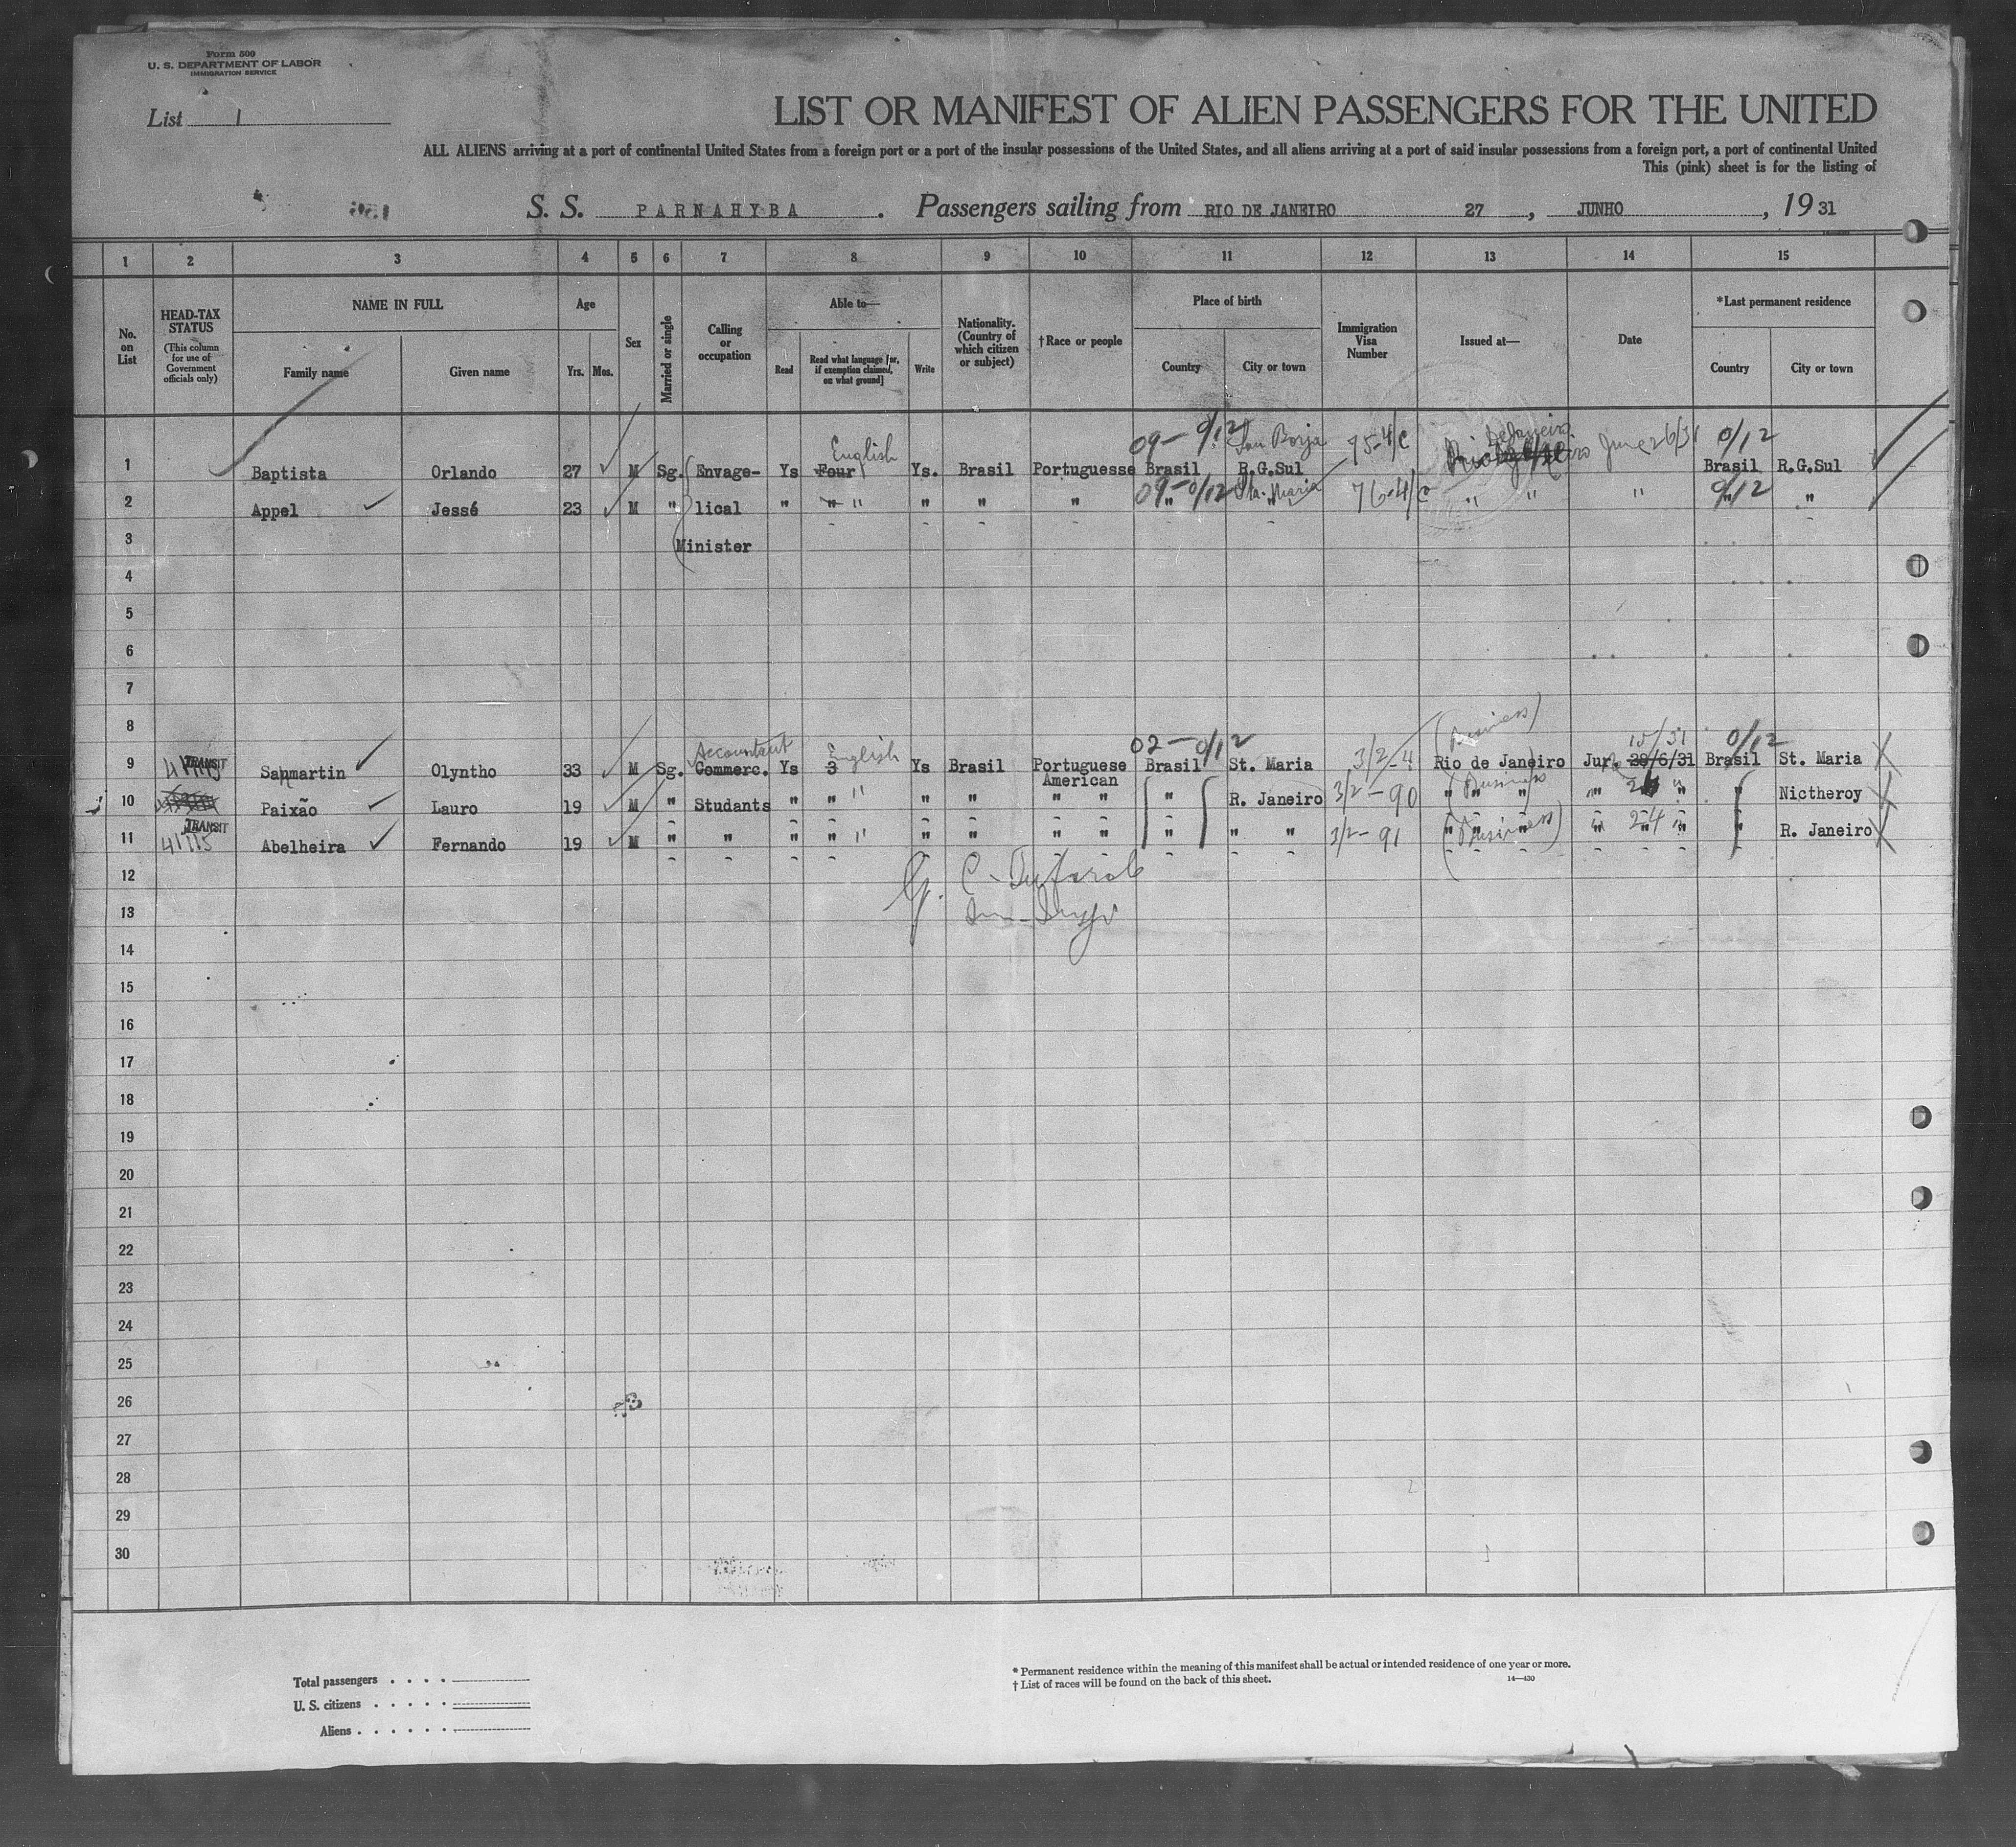 Form 500
U. S. DEPARTMENT OF LABOR
IMMIGRATION SERVICE
List 1
LIST OR MANIFEST OF ALIEN PASSENGERS FOR THE UNITED
ALL ALIENS arriving at a port of continental United States from a foreign port or a port of the insular possessions of the United States, and all aliens arriving at a port of said insular possessions from a foreign port, a port of continental United
This (pink) sheet is for the listing of
S. S. PARNAHYBA . Passengers sailing from RIO DE JANEIRO 27 , JUNHO , 19 31
1 2 3 4 5 6 7 8 9 10 11 12 13 14 15
No. on List
HEAD-TAX STATUS
(This column for use of Government officials only)
NAME IN FULL
Family name Given name
Age
Yrs. Mos.
Sex
Married or single
Calling or occupation
Able to—
Read
Read what language [or, if exemption claimed, on what ground]
Write
Nationality. (Country of which citizen or subject)
†Race or people
Place of birth
Country City or town
Immigration Visa Number
Issued at—
Date
*Last permanent residence
Country City or town
09- 0/12 San Borja 75-4/C de Janeiro June 26/31 0/12
English
1 Baptista Orlando 27 M Sg. Envage- Ys Four Ys. Brasil Portuguesse Brasil R.G.Sul Rio Brasil R.G.Sul
09- 0/12 Sta. Maria 76-4/C 0/12
2 Appel Jessé 23 M " lical " " " " " " " " " " " " " "
3 Minister
4
5
6
7
8
(Business)
Accountant English 02- 0/12 15/31 0/12
9 41115 TRANSIT Sanmartin Olyntho 33 M Sg. Commerc. Ys 3 Ys Brasil Portuguese Brasil St. Maria 3/2-4 Rio de Janeiro Jun. 26/6/31 Brasil St. Maria
American
10 Paixão Lauro 19 M " Studants " " " " " " " " R. Janeiro 3/2-90 " " " (Business) " " " Nictheroy
11 41115 TRANSIT Abelheira Fernando 19 M " " " " " " " " " " " " 3/2-91 " " " (Business) " 24 " " R. Janeiro
12
13
14
15
16
17
18
19
20
21
22
23
24
25
26
27
28
29
30
Total passengers . . . .
U. S. citizens . . . . .
Aliens . . . . . .
* Permanent residence within the meaning of this manifest shall be actual or intended residence of one year or more.
† List of races will be found on the back of this sheet.
14—430